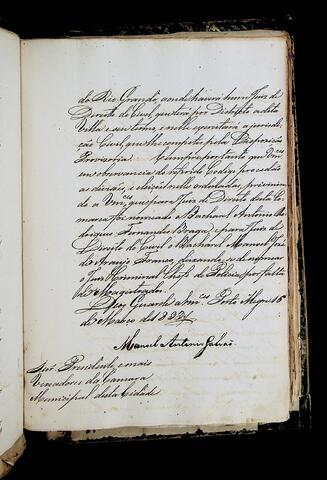 do Rio Grande, aonde haverá hum Juiz de
Direito do Civel, que terá por Districto a dita
Villa e seu termo e nelle exercitará a jurisdi-
ção Civel, que lhe compete pela Disposição
Provisoria. Cumpre portanto que V.mces
em observancia do referido Codigo procedão
as divisão, e eleição nelle ordenadas, prevenin-
do a V.mces que para Juiz de Direito desta Co-
marca foi nomeado o Bacharel Antonio Ro-
drigues Fernandes Braga, e para Juiz de
Direito do Civel o Bacharel Manoel José
de Araujo Franco, ficando
o Juiz Criminal Chefe de Policia por falta
de Magistrados.
Deos Guarde a V.mces Porto Alegre 15
de Março de 1833
Manuel Antonio Galvão
Snr. Presidente, e mais
Vereadores da Camara
Municipal desta Cidade